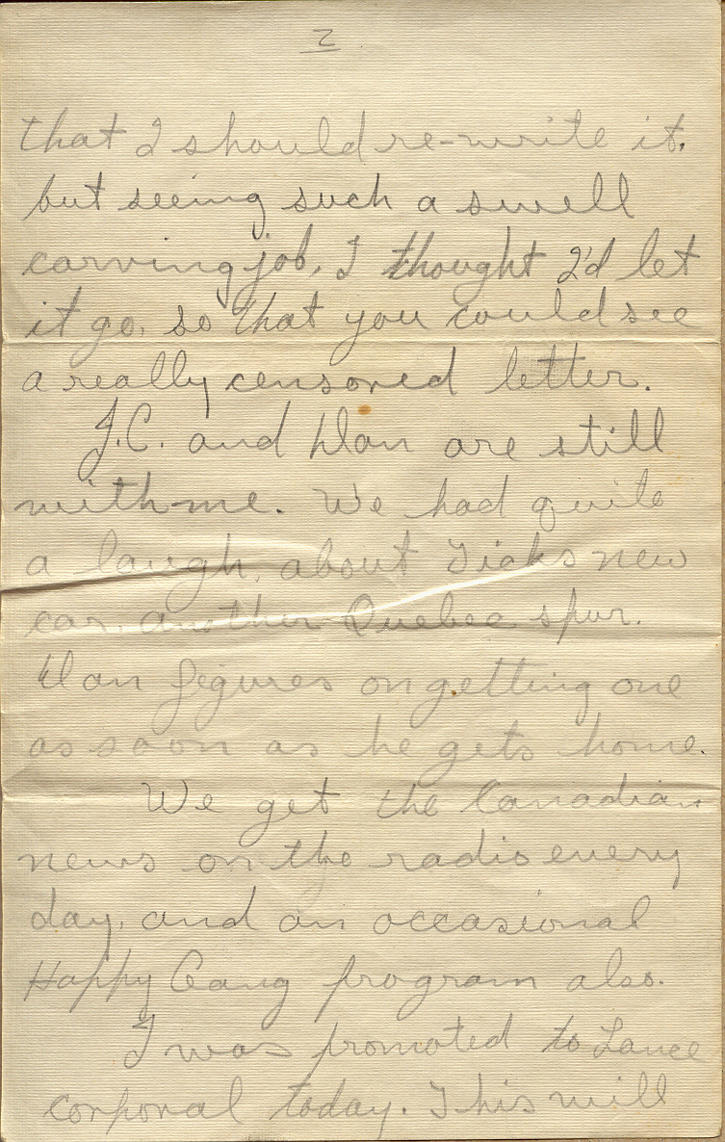 2
that I should re-write it,
but seeing such a swell
carving job, I thought I'd let
it go, so that you could see
a really censored letter.
J.C. and Dan are still
with me. We had quite
a laugh, about new
car, another Quebec spur.
Dan figures on getting one
as soon as he gets home.
We get the Canadian
news on the radio every
day, and an occasional
Happy Gang program also.
I was promoted to Lance
corporal today. This will